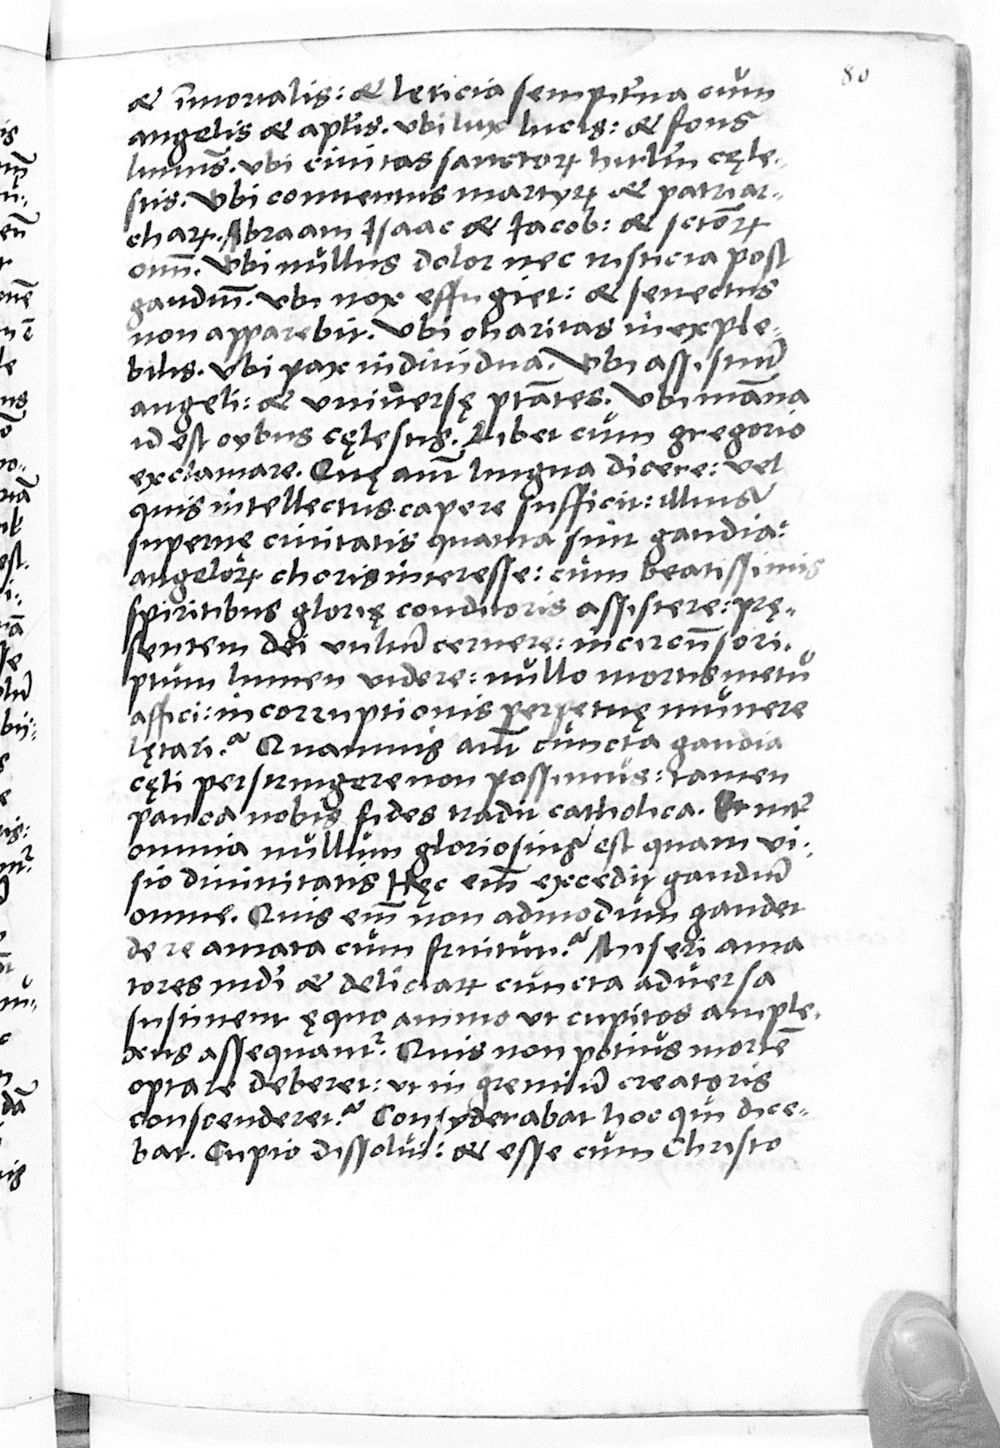 80
& īmortalis: & lęticia sempit̄na cum
angelis & apl̄is. Ubi lux lucis: & fons
lumīs. Ubi ciuitas sanctoꝝ hirl̄m cęle-
stis. Ubi conuentus martyꝝ & patriar-
chaꝝ. Abraam Isaac & Iacob: & sctōꝝ
om̄. Ubi nullus dolor nec tristicia post
gaudiū. Ubi nox effugiet: & senectus
non apparebit. Ubi charitas inexple-
bilis. Ubi pax indiuidua. Ubi assistūt
angeli: & uniuersę ptātes. Ubi māna
id est cybus cęlestis. Libet cum gregorio
exclamare. Quę aūt lingua dicere: uel
quis intellectus capere sufficit: illius
supernę ciuitatis quanta sint gaudia:
angeloꝝ choris interesse: cum beatissimis
spiritibus glorię conditoris assistere: prę-
sentem dei uultū cernere: incircūscri-
ptum lumen uidere: nullo mortis metu
affici: incorruptionis perpetuę munere
lętari? Quamuis aūt cuncta gaudia
cęli perstringere non possimus: tamen
pauca nobis fides tradit catholica. Et int̄
omnia nullum gloriosius est quam ui-
sio diuinitatis Hęc em̄ excedit gaudiū
omne. Quis em̄ non admodum gaudet
de re amata cum fruitur? Miseri ama
tores mdi & deliciaꝝ cuncta aduersa
sustinent ęquo animo ut cupitos ample-
xus assequant᷑. Quis non potius mortē
optare deberet: ut in gremiū creatoris
conscenderet? Consyderabat hoc qui dice-
bat. Cupio dissolui: & esse cum Christo